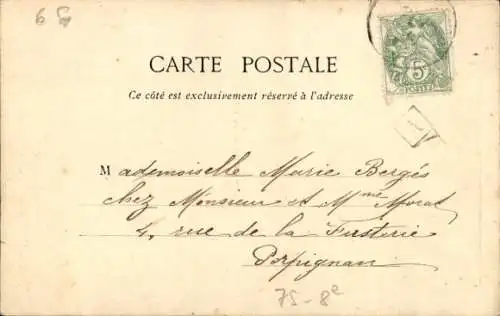 6 5g
CARTE POSTALE
Ce côté est exclusivement réservé à l'adresse
5
POSTES
Mademoiselle Marie Bergés
chez Monsieur et Mme Morat
4, rue de la Fusterie
Perpignan
75-8e